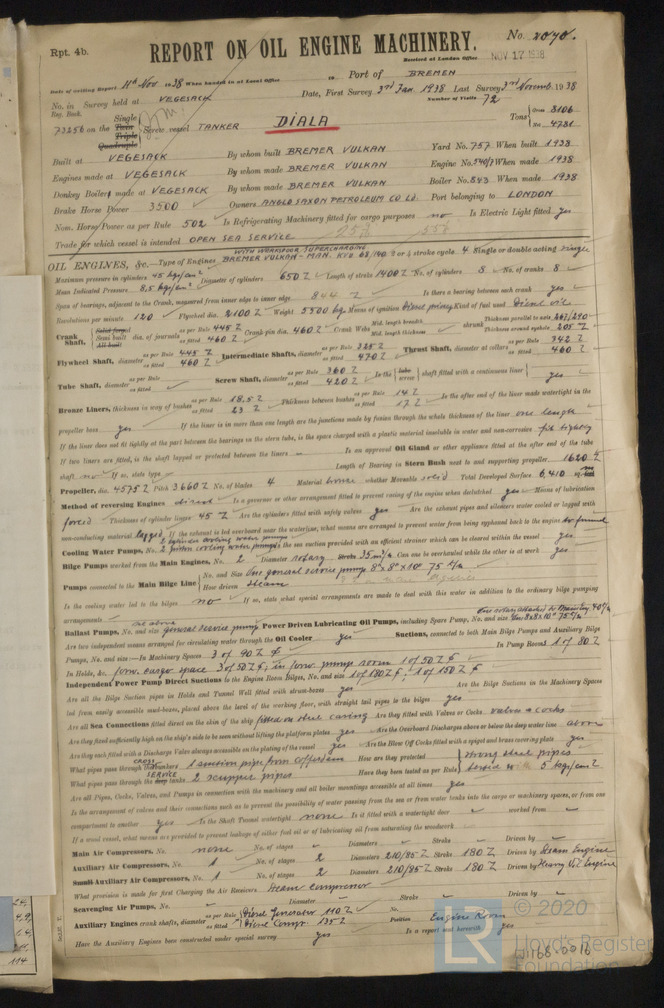 Rpt. 4b.
No. 2070.
REPORT ON OIL ENGINE MACHINERY.
Received at London Office NOV 17 1938
Date of writing Report 11th Nov 1938 When handed in at Local Office 19 Port of BREMEN
No. in Survey held at VEGESACK Date, First Survey 3rd Jan. 1938 Last Survey 3rd Novemb. 1938
Reg. Book. Number of Visits 72
73256 on the Single Twin Triple Quadruple Screw vessel TANKER DIALA Tons Gross 8106 Net 4781
Built at VEGESACK By whom built BREMER VULKAN Yard No. 757 When built 1938
Engines made at VEGESACK By whom made BREMER VULKAN Engine No. When made 1938
Donkey Boilers made at VEGESACK By whom made BREMER VULKAN Boiler No. 843 When made 1938
Brake Horse Power 3500 Owners ANGLO SAXON PETROLEUM CO LD. Port belonging to LONDON
Nom. Horse Power as per Rule 502 Is Refrigerating Machinery fitted for cargo purposes no Is Electric Light fitted yes
Trade for which vessel is intended OPEN SEA SERVICE
WITH WORKSPOOR SUPERCHARGING
OIL ENGINES, &c. Type of Engines BREMER VULKAN - MAN. 2 or 4 stroke cycle 4 Single or double acting single
Maximum pressure in cylinders 45 kgs/cm² Diameter of cylinders 650 Length of stroke 1400 No. of cylinders 8 No. of cranks 8
Mean Indicated Pressure 8,5 kgs/cm²
Span of bearings, adjacent to the Crank, measured from inner edge to inner edge 844 Is there a bearing between each crank yes
Revolutions per minute 120 Flywheel dia. 2100 Weight 5500 kg Means of ignition Kind of fuel used Diesel oil
Crank Shaft, Solid forged Semi built All built dia. of journals as per Rule 445 as fitted 460 Crank pin dia. 460 Crank Webs Mid. length breadth Mid. length thickness shrunk Thickness parallel to axis Thickness around eyehole 205
Flywheel Shaft, diameter as per Rule 445 as fitted 460 Intermediate Shafts, diameter as per Rule 325 as fitted 470 Thrust Shaft, diameter at collars as per Rule 342 as fitted 460
Tube Shaft, diameter as per Rule as fitted Screw Shaft, diameter as per Rule 360 as fitted 420 Is the tube screw shaft fitted with a continuous liner yes
Bronze Liners, thickness in way of bushes as per Rule 18,5 as fitted 23 Thickness between bushes as per Rule 14 as fitted 17 Is the after end of the liner made watertight in the
propeller boss yes If the liner is in more than one length are the junctions made by fusion through the whole thickness of the liner one length
If the liner does not fit tightly at the part between the bearings in the stern tube, is the space charged with a plastic material insoluble in water and non-corrosive fits tightly
If two liners are fitted, is the shaft lapped or protected between the liners Is an approved Oil Gland or other appliance fitted at the after end of the tube
shaft no If so, state type Length of Bearing in Stern Bush next to and supporting propeller 1620
Propeller, dia. 4575 Pitch 3660 No. of blades 4 Material bronze whether Moveable solid Total Developed Surface 6,410
Method of reversing Engines direct Is a governor or other arrangement fitted to prevent racing of the engine when declutched yes Means of lubrication
forced Thickness of cylinder liners 45 Are the cylinders fitted with safety valves yes Are the exhaust pipes and silencers water cooled or lagged with
non-conducting material lagged If the exhaust is led overboard near the waterline, what means are arranged to prevent water from being syphoned back to the engine to funnel
Cooling Water Pumps, No. 2 cylinder cooling water pumps 2 piston cooling water pumps Is the sea suction provided with an efficient strainer which can be cleared within the vessel yes
Bilge Pumps worked from the Main Engines, No. 2 Diameter rotary Stroke 35 m³/h Can one be overhauled while the other is at work yes
Pumps connected to the Main Bilge Line No. and Size One general service pump 8"x8"x10" 75 t/h
How driven steam
Is the cooling water led to the bilges no If so, state what special arrangements are made to deal with this water in addition to the ordinary bilge pumping
arrangements
Ballast Pumps, No. and size general service pump Power Driven Lubricating Oil Pumps, including Spare Pump, No. and size
Are two independent means arranged for circulating water through the Oil Cooler yes Suctions, connected to both Main Bilge Pumps and Auxiliary Bilge
Pumps, No. and size:—In Machinery Spaces 3 of 90 In Pump Room 1 of 80
In Holds, &c. forw. cargo space 3 of 50, in forw. pump room 1 of 50
Independent Power Pump Direct Suctions to the Engine Room Bilges, No. and size 1 of 180, 1 of 150
Are all the Bilge Suction pipes in Holds and Tunnel Well fitted with strum-boxes yes Are the Bilge Suctions in the Machinery Spaces
led from easily accessible mud-boxes, placed above the level of the working floor, with straight tail pipes to the bilges yes
Are all Sea Connections fitted direct on the skin of the ship fitted on steel casing Are they fitted with Valves or Cocks valves & cocks
Are they fixed sufficiently high on the ship's side to be seen without lifting the platform plates yes Are the Overboard Discharges above or below the deep water line above
Are they each fitted with a Discharge Valve always accessible on the plating of the vessel yes Are the Blow Off Cocks fitted with a spigot and brass covering plate yes
What pipes pass through the bunkers 1 suction pipe from cofferdam How are they protected strong steel pipes
What pipes pass through the deep tanks SERVICE 2 scupper pipes Have they been tested as per Rule tested with 5 kgs/cm²
Are all Pipes, Cocks, Valves, and Pumps in connection with the machinery and all boiler mountings accessible at all times yes
Is the arrangement of valves and their connections such as to prevent the possibility of water passing from the sea or from water tanks into the cargo or machinery spaces, or from one
compartment to another yes Is the Shaft Tunnel watertight none Is it fitted with a watertight door worked from
If a wood vessel, what means are provided to prevent leakage of either fuel oil or of lubricating oil from saturating the woodwork
Main Air Compressors, No. none No. of stages Diameters Stroke Driven by
Auxiliary Air Compressors, No. 1 No. of stages 2 Diameters 210/85 Stroke 180 Driven by Steam Engine
Small Auxiliary Air Compressors, No. 1 No. of stages 2 Diameters 210/85 Stroke 180 Driven by Heavy Oil Engine
What provision is made for first Charging the Air Receivers steam compressor
Scavenging Air Pumps, No. Diameter Stroke Driven by
Auxiliary Engines crank shafts, diameter as per Rule Diesel Generator 110 as fitted Diesel Compr. 135 No. Position Engine Room
Have the Auxiliary Engines been constructed under special survey yes Is a report sent herewith yes
© 2020
LR
Lloyd's Register
Foundation
W1168-0016
114